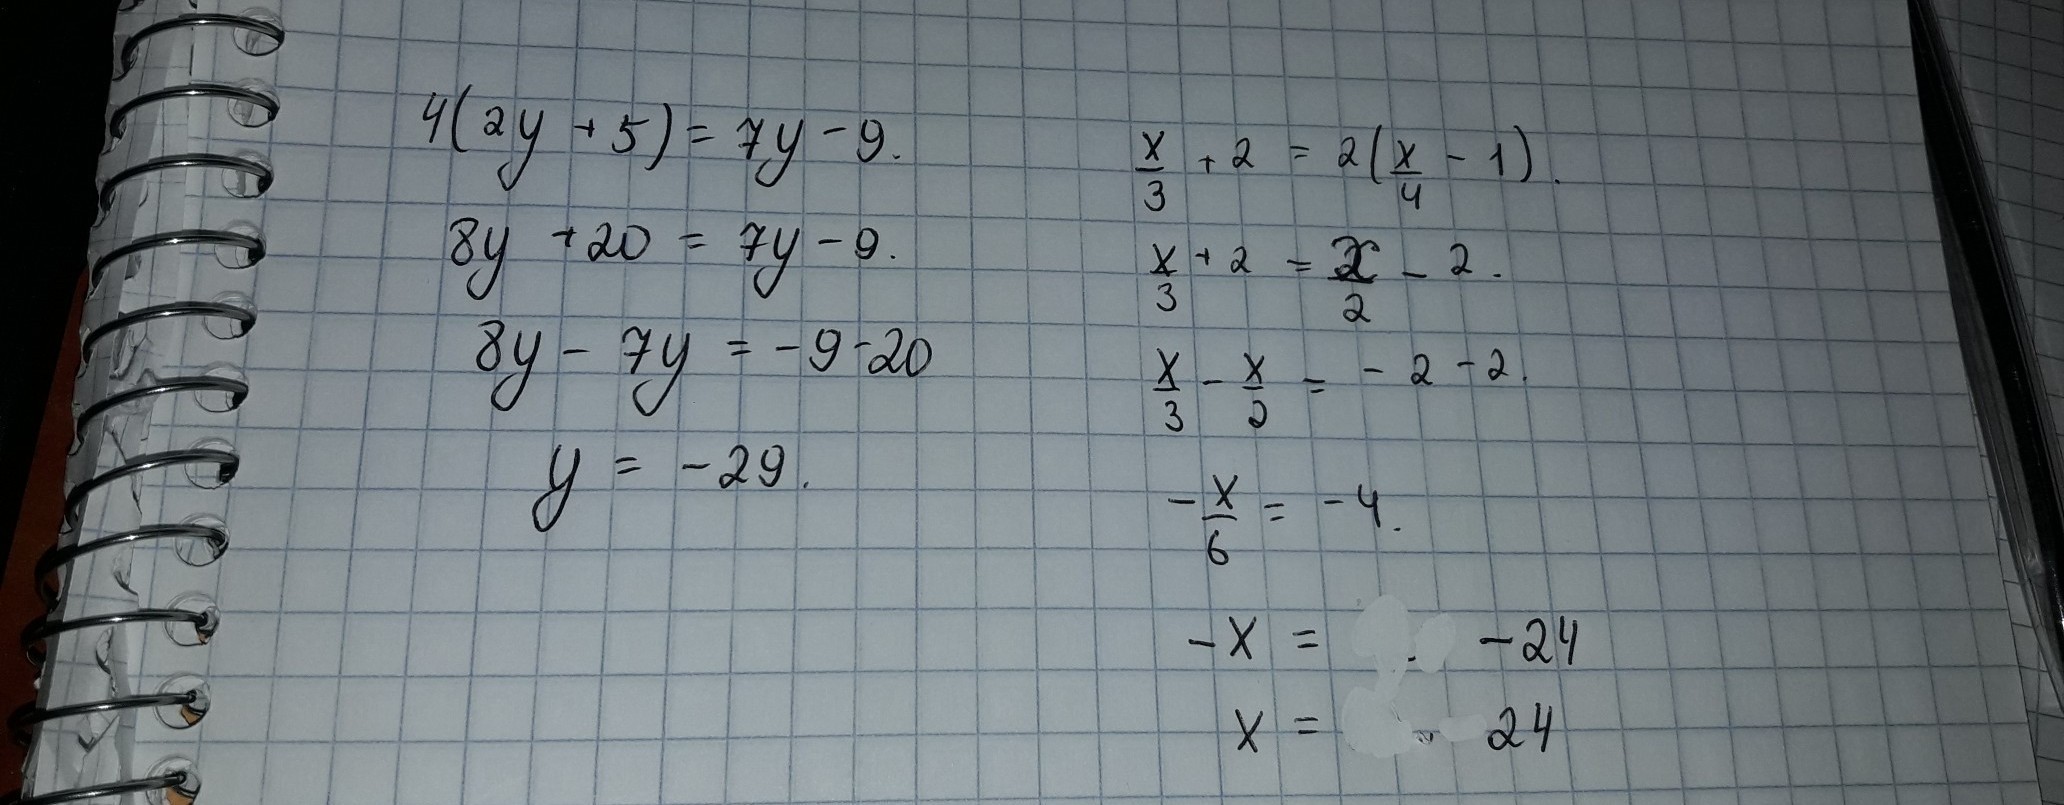 4(2y + 5) = 7y - 9.
8y + 20 = 7y - 9.
8y - 7y = -9-20
y = -29.
x/3 + 2 = 2(x/4 - 1).
x/3 + 2 = x/2 - 2.
x/3 - x/2 = -2 - 2.
-x/6 = -4.
-x = -24
x = 24